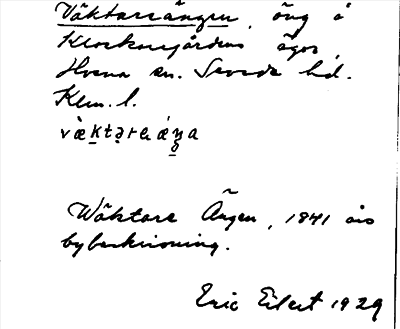 Väktareängen, äng å
Klockaregårdens ägor,
Hvena sn. Sevede hd.
Klm. l.
væ̀ktạreǽŋ̥a
Wäktare Ängen, 1841 års
bybeskrivning.
Eric Eilert 1929